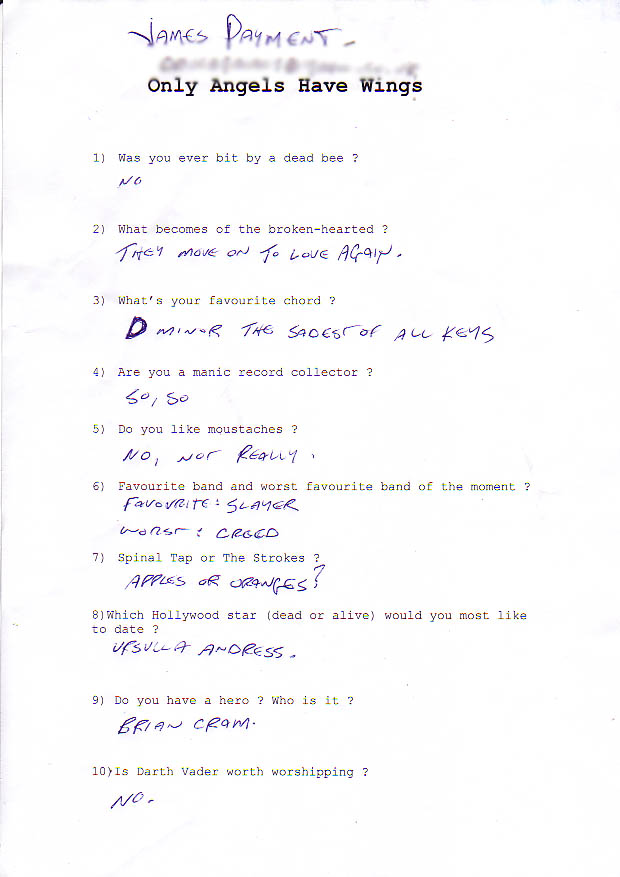 JAMES PAYMENT -
Only Angels Have Wings
1) Was you ever bit by a dead bee ?
NO
2) What becomes of the broken-hearted ?
THEY MOVE ON TO LOVE AGAIN.
3) What's your favourite chord ?
D MINOR THE SADEST OF ALL KEYS
4) Are you a manic record collector ?
SO, SO
5) Do you like moustaches ?
NO, NOT REALLY.
6) Favourite band and worst favourite band of the moment ?
FAVOURITE: SLAYER
WORST: CREED
7) Spinal Tap or The Strokes ?
APPLES OR ORANGES?
8)Which Hollywood star (dead or alive) would you most like
to date ?
URSULLA ANDRESS.
9) Do you have a hero ? Who is it ?
BRIAN CRAM.
10)Is Darth Vader worth worshipping ?
NO.